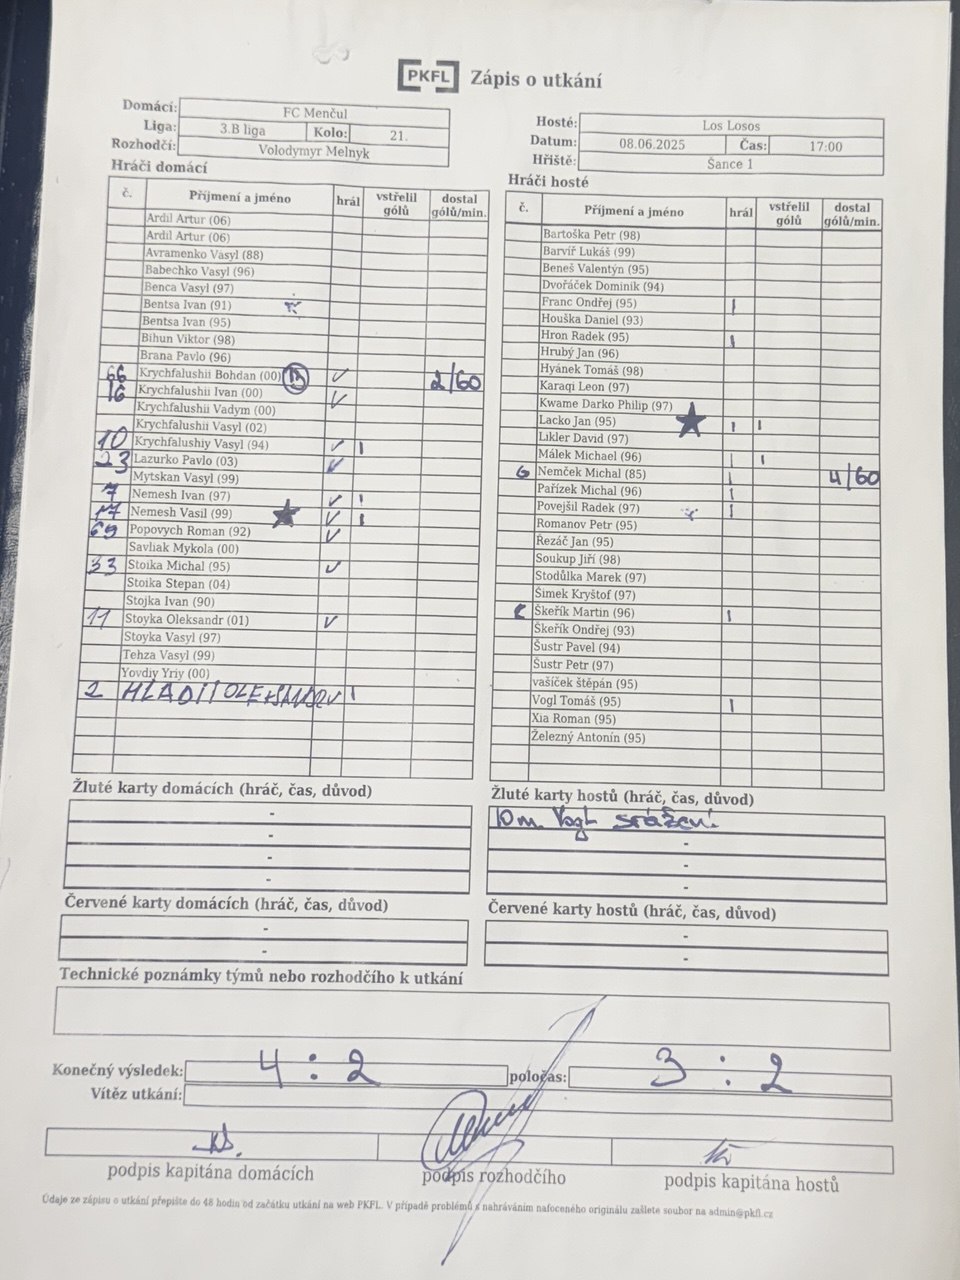 PKFL Zápis o utkání
Domácí: FC Menčul
Liga: 3.B liga Kolo: 21.
Rozhodčí: Volodymyr Melnyk
Hosté: Los Losos
Datum: 08.06.2025 Čas: 17:00
Hřiště: Šance 1
Hráči domácí
č. Příjmení a jméno hrál vstřelil gólů dostal gólů/min.
Ardil Artur (06)
Ardil Artur (06)
Avramenko Vasyl (88)
Babechko Vasyl (96)
Benca Vasyl (97)
Bentsa Ivan (91)
Bentsa Ivan (95)
Bihun Viktor (98)
Brana Pavlo (96)
66 Krychfalushii Bohdan (00) ✓ 2/60
16 Krychfalushii Ivan (00) ✓
Krychfalushii Vadym (00)
Krychfalushii Vasyl (02)
10 Krychfalushiy Vasyl (94) ✓ |
23 Lazurko Pavlo (03) ✓
Mytskan Vasyl (99)
7 Nemesh Ivan (97) ✓ |
17 Nemesh Vasil (99) ★ ✓ |
69 Popovych Roman (92) ✓
Savliak Mykola (00)
33 Stoika Michal (95) ✓
Stoika Stepan (04)
Stojka Ivan (90)
11 Stoyka Oleksandr (01) ✓
Stoyka Vasyl (97)
Tehza Vasyl (99)
Yovdiy Yriy (00)
2 HLADII |
Hráči hosté
č. Příjmení a jméno hrál vstřelil gólů dostal gólů/min.
Bartoška Petr (98)
Barvíř Lukáš (99)
Beneš Valentýn (95)
Dvořáček Dominik (94)
Franc Ondřej (95) |
Houška Daniel (93)
Hron Radek (95) |
Hrubý Jan (96)
Hyánek Tomáš (98)
Karaqi Leon (97)
Kwame Darko Philip (97)
Lacko Jan (95) ★ | |
Likler David (97)
Málek Michael (96) | |
G Nemček Michal (85) | 4/60
Pařízek Michal (96) |
Povejšil Radek (97) |
Romanov Petr (95)
Řezáč Jan (95)
Soukup Jiří (98)
Stodůlka Marek (97)
Šimek Kryštof (97)
C Škeřík Martin (96) |
Škeřík Ondřej (93)
Šustr Pavel (94)
Šustr Petr (97)
vašíček štěpán (95)
Vogl Tomáš (95) |
Xia Roman (95)
Železný Antonín (95)
Žluté karty domácích (hráč, čas, důvod)
-
-
-
-
Žluté karty hostů (hráč, čas, důvod)
10 m. Vogl sražení
-
-
-
Červené karty domácích (hráč, čas, důvod)
-
-
Červené karty hostů (hráč, čas, důvod)
-
-
Technické poznámky týmů nebo rozhodčího k utkání
Konečný výsledek: 4 : 2 poločas: 3 : 2
Vítěz utkání:
podpis kapitána domácích podpis rozhodčího podpis kapitána hostů
Údaje ze zápisu o utkání přepište do 48 hodin od začátku utkání na web PKFL. V případě problémů s nahráváním nafoceného originálu zašlete soubor na admin@pkfl.cz